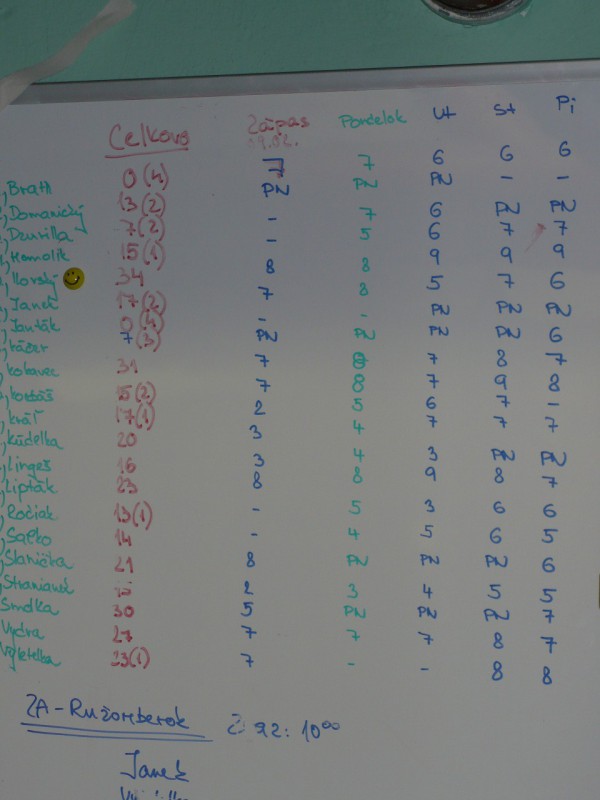 Celkovo Zápas Pondelok Ut St Pi
19.02.
Brath 0(4) 7 7 6 6 6
Domanický 13(2) PN PN PN - -
Dzurilla 7(2) - 7 6 PN PN
Homolik 15(1) - 5 6 7 7
Ilovský 34 8 8 9 9 9
Janek 17(2) 7 8 5 7 6
Jančák 0(4) - - PN PN PN
káčer 7(3) PN PN PN PN 6
kobavec 31 7 8 7 8 7
korbáš 15(2) 7 8 7 9 8
kráľ 17(1) 2 5 6 7 -
kúdelka 20 3 4 7 7 7
Linges 16 3 4 3 PN PN
Lipták 23 8 8 9 8 7
Ročiak 13(1) - 5 3 6 6
Saľko 14 - 4 5 6 5
Slanička 21 8 PN PN PN 6
Stranianek 15 2 3 4 5 5
Smrdka 30 5 PN PN PN 7
Vydra 27 7 7 7 8 7
Vyletelka 23(1) 7 - - 8 8
ZA-Ružomberok 10⁰⁰
Janek